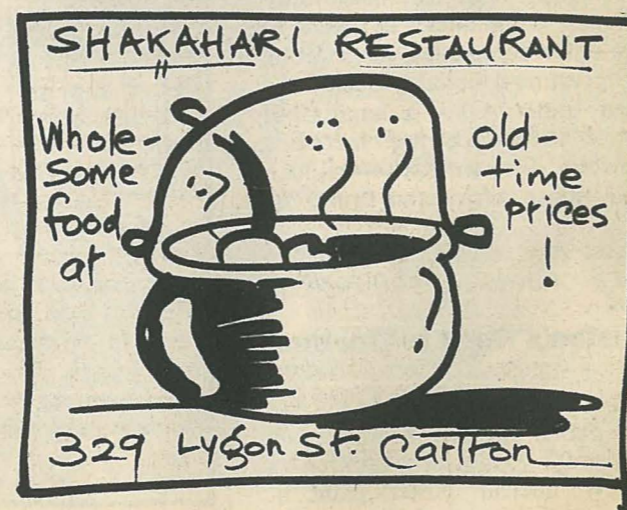 SHAKAHARI RESTAURANT
Whole-
some
food
at
old-
time
prices
!
329 Lygon St. Carlton